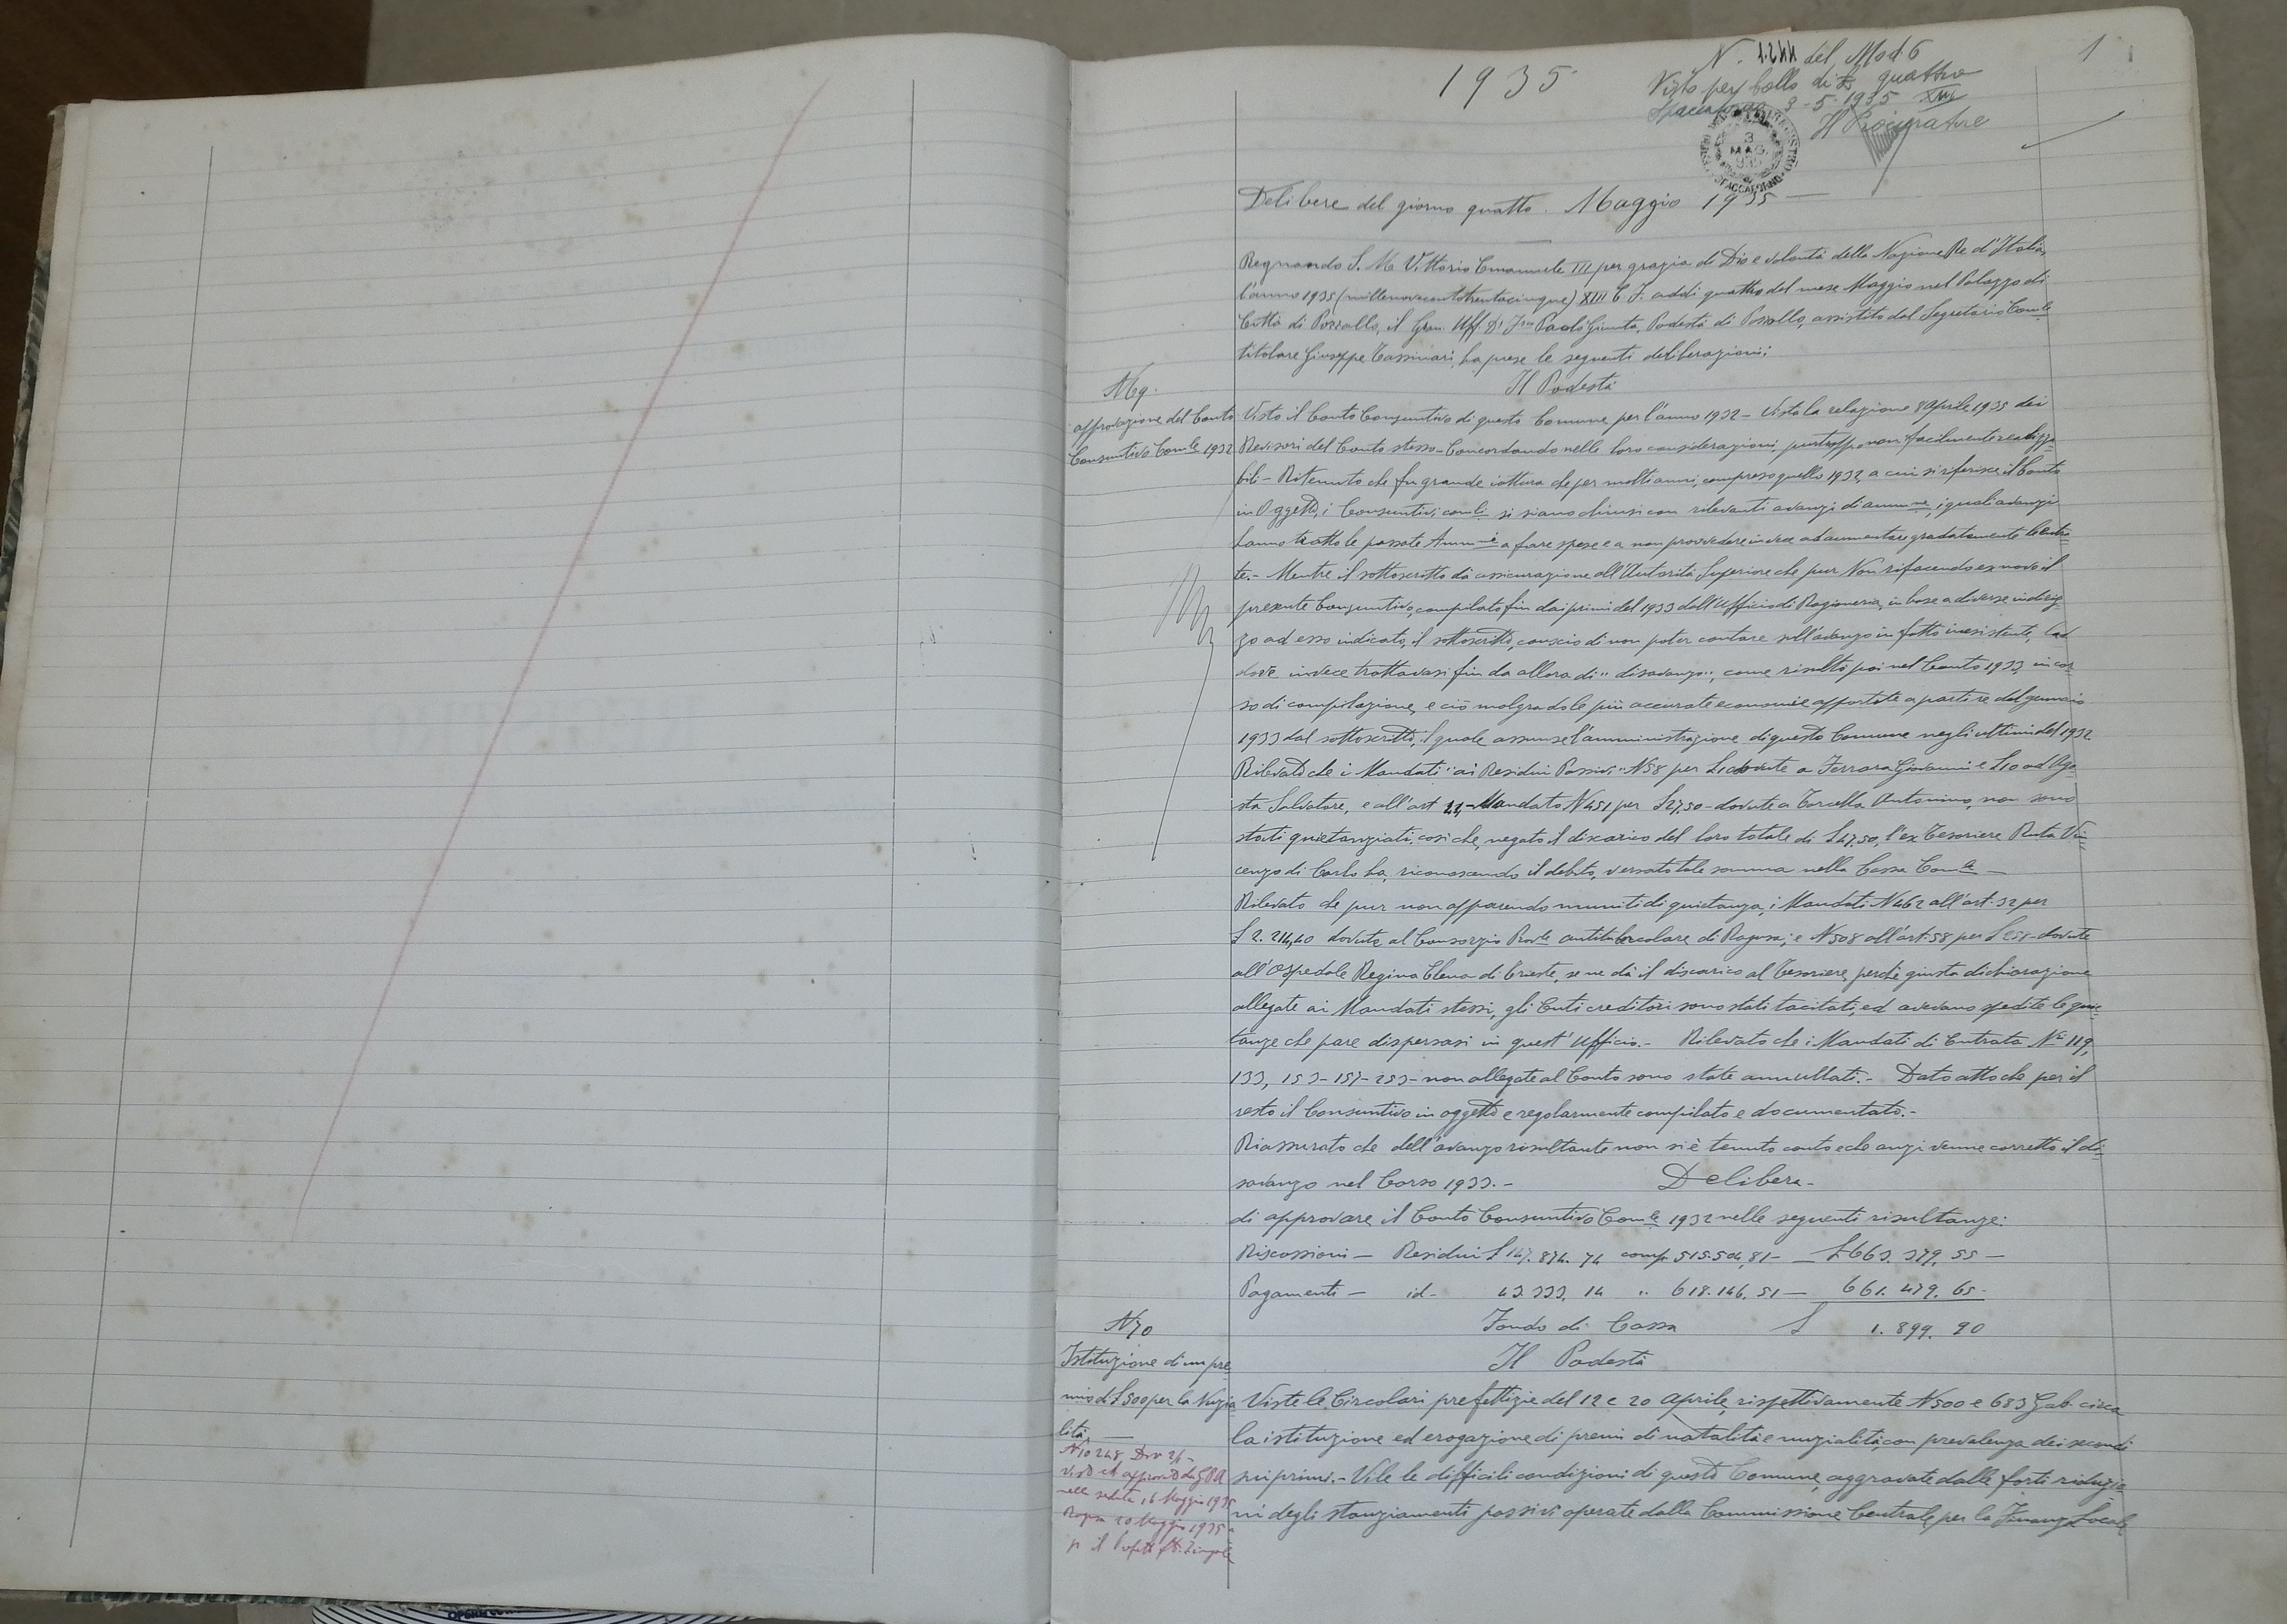 1935
1
N. 1.241 del Mod. 6
Visto per bollo di £ quattro
Spaccaforno 3-5-1935 XIII
Il Procuratore
3
MAG.
935
SPACCAFORNO
Delibere del giorno quattro Maggio 1935
Regnando S. M. Vittorio Emanuele III per grazia di Dio e volontà della Nazione Re d'Italia,
l'anno 1935 (millenovecentotrentacinque) XIII E. F. addì quattro del mese Maggio nel Palazzo di
Città di Pozzallo, il Gran. Uff. Dr Paolo Giunta, Podestà di Pozzallo, assistito dal Segretario Comle
titolare Giuseppe Cassinari, ha prese le seguenti deliberazioni:
N 69.
approvazione del Conto
Consuntivo Comle 1932
Il Podestà
Visto il Conto Consuntivo di questo Comune per l'anno 1932 - Vista la relazione 8 Aprile 1935 dei
Revisori del Conto stesso - Concordando nelle loro considerazioni, purtroppo non facilmente realizza-
bili - Ritenuto che fu grande iattura che per molti anni, compreso quello 1932, a cui si riferisce il Conto
in Oggetto, i Consuntivi comli si siano chiusi con rilevanti avanzi di ammne, i quali avanzi
hanno tratto le passate Ammni a fare spese e a non provvedere invece ad aumentare gradatamente le entra-
te. - Mentre il sottoscritto dà assicurazione all'Autorità Superiore che pur Non rifacendo ex novo il
presente Consuntivo, compilato fin dai primi del 1933 dall'Ufficio di Ragioneria, in base a diverso indiriz-
zo ad esso indicato, il sottoscritto, conscio di non poter contare sull'avanzo in fatto inesistente, lad-
dove invece trattavasi fin da allora di "disavanzo", come risultò poi nel Conto 1933, in cor-
so di compilazione, e ciò malgrado le più accurate economie apportate a partire dal gennaio
1933 dal sottoscritto, il quale assunse l'amministrazione di questo Comune negli ultimi del 1932.
Rilevato che i Mandati "ai Residui Passivi" N 58 per L 10 dovute a Ferrara Giovanni e £ 10 ad Ago-
sta Salvatore, e all'art 21 - Mandato N 451 per £ 27,50 - dovute a Torcella Antonino, non sono
stati quietanziati, così che, negato il discarico del loro totale di £ 47,50, l'ex Tesoriere Ruta Vin-
cenzo di Carlo ha, riconoscendo il debito, versato tale somma nella Cassa Comle -
Rilevato che pur non apparendo muniti di quietanza, i Mandati N 462 all'art. 32 per
£ 2.214,40 dovute al Consorzio Provle antitubercolare di Ragusa; e N 508 all'art. 58 per £ 258 - dovute
all'Ospedale Regina Elena di Trieste, se ne dà il discarico al Tesoriere, perchè giusta dichiarazione
allegate ai Mandati stessi, gli Enti creditori sono stati tacitati, ed avevano spedite le quie-
tanze che pare dispersasi in quest'Ufficio. - Rilevato che i Mandati di Entrata Ni 119,
133, 153 - 157 - 253 - non allegate al Conto sono state annullati. - Dato atto che per il
resto il Consuntivo in oggetto è regolarmente compilato e documentato. -
Riassurato che dell'avanzo risultante non si è tenuto conto e che anzi venne corretto il di-
savanzo nel Corso 1933. - Delibera -
di approvare il Conto Consuntivo Comle 1932 nelle seguenti risultanze:
Riscossioni - Residui £ 147.874.74 comp. 515.504,81 - £ 663.379,55 -
Pagamenti - id - 43.333.14 " 618.146,51 - 661.479.65 -
Fondo di Cassa £ 1.899.90
N 70
Istituzione di un pre-
mio di £ 500 per la Nuzia-
lità, -
N 10248 Div 2/1 -
Visto ed approvato da G P A
nella seduta 16 Maggio 1935
Ragusa 20 Maggio 1935
p. il Prefetto
Il Podestà
Viste le Circolari prefettizie del 12 e 20 Aprile, rispettivamente N 500 e 683 Gab. circa
la istituzione ed erogazione di premi di natalità e nuzialità, con prevalenza dei secondi
sui primi. - Viste le difficili condizioni di questo Comune, aggravate dalle forti riduzio-
ni degli stanziamenti passivi operate dalla Commissione Centrale per la Finanza Locale